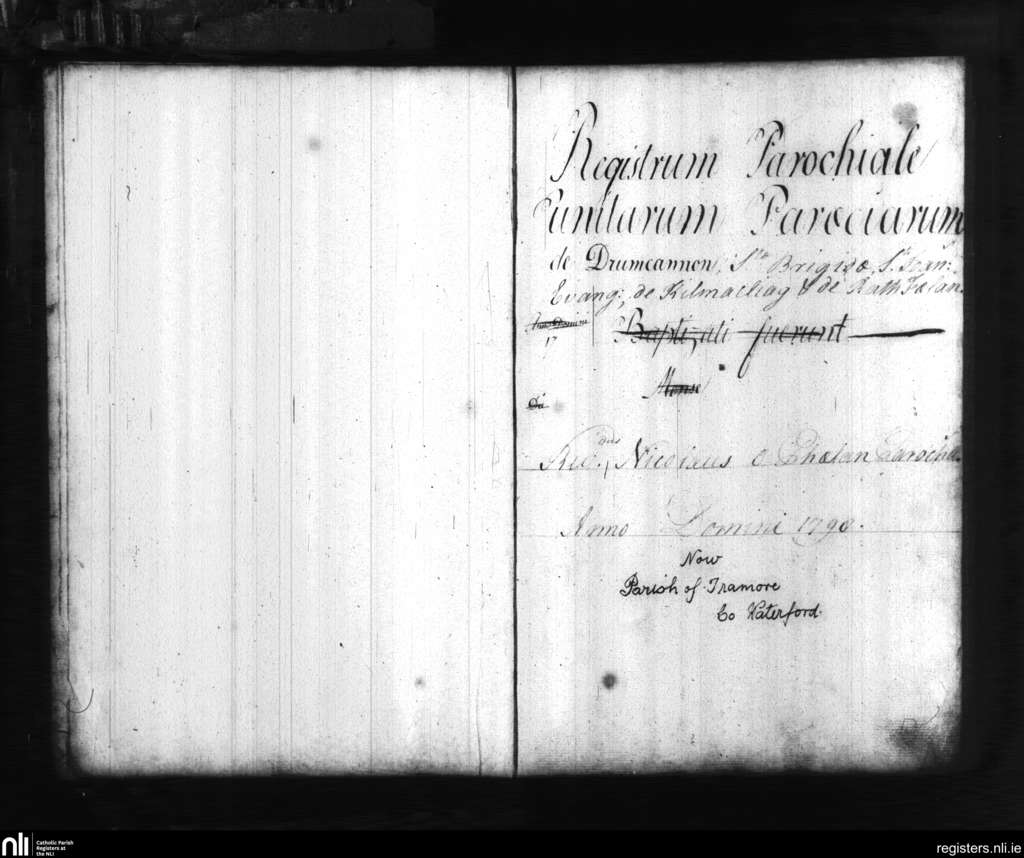 Registrum Parochiale
unitarum Parociarum
de Drumcannon, Stæ Brigidæ, Sti Joan:
Evang:, de Kilmacleag & de Rath
Anno Domini
17
Baptizati fuerunt
Mense
Die
Rdus., Nicolaus O Phelan Parochus
Anno Domini 1798.
Now
Parish of Tramore
Co Waterford.
nli
Catholic Parish
Registers at
the NLI
registers.nli.ie